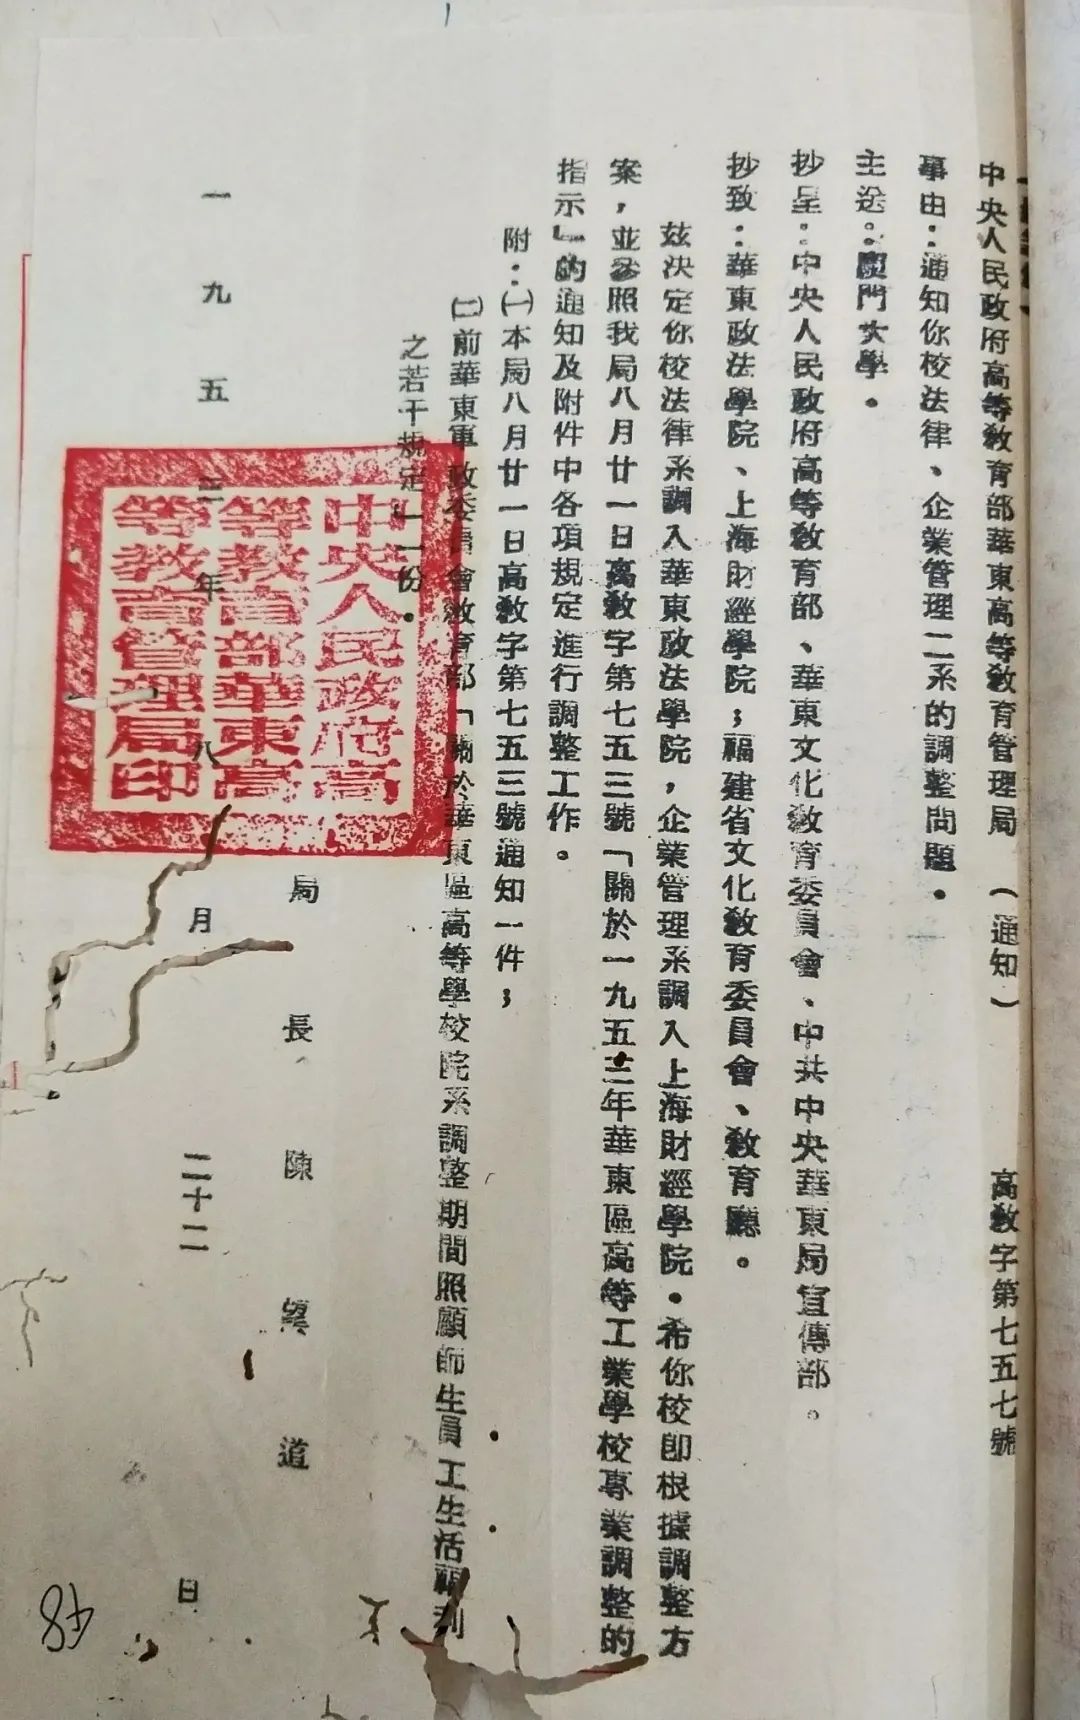 中央人民政府高等敎育部華東高等敎育管理局 (通知) 高敎字第七五七號
事由：通知你校法律、企業管理二系的調整問題。
主送：廈門大學。
抄呈：中央人民政府高等敎育部、華東文化敎育委員會、中共中央華東局宣傳部。
抄致：華東政法學院、上海財經學院；福建省文化敎育委員會、敎育廳。
茲決定你校法律系調入華東政法學院，企業管理系調入上海財經學院。希你校卽根據調整方
案，並參照我局八月廿一日高敎字第七五三號「關於一九五三年華東區高等工業學校專業調整的
指示」的通知及附件中各項規定進行調整工作。
附：㈠本局八月廿一日高敎字第七五三號通知一件；
㈡前華東軍政委員會敎育部「關於華東區高等學校院系調整期間照顧師生員工生活福利
之若干規定」一份。
局長 陳望道
一九五三年八月二十二日
中央人民政府高
等教育部華東高
等教育管理局印
48